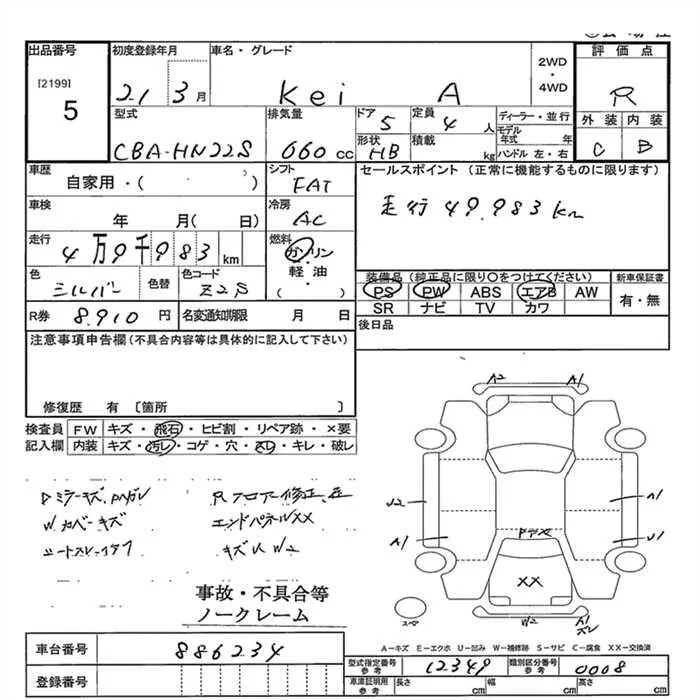 出品番号 初度登録年月 車名・グレード 2WD・4WD 評価点
[2199] 5 21 3月 Kei A R
型式 排気量 ドア 5 定員 4人 ディーラー・並行 外装 内装
CBA-HN22S 660cc 形状 HB 積載 kg モデル年式 年 ハンドル 左・右 C B
車歴 自家用・( ) シフト FAT セールスポイント (正常に機能するものに限ります)
車検 年 月( 日) 冷房 AC 走行 49,983km
走行 4万9千983km 燃料 ガソリン・軽油・( )
色 シルバー 色替 色コード Z2S 装備品(純正品に限り○をつけてください) 新車保証書
PS PW ABS エアB AW 有・無
SR ナビ TV カワ
R券 8,910円 名変通知期限 月 日 後日品
注意事項申告欄(不具合内容等は具体的に記入して下さい)
修復歴 有 〔箇所 〕
検査員 FW キズ・飛石・ヒビ割・リペア跡・×要
記入欄 内装 キズ・汚レ・コゲ・穴・スレ・キレ・破レ
A2 A1
Dミラーキズ Rフロアー修正
Wカバーキズ エンドパネルXX
キズ W2
U2 A1
A1 U1
XX
W2 A1
スペア
事故・不具合等
ノークレーム
A-キズ E-エクボ U-凹み W-補修跡 S-サビ C-腐食 XX-交換済
車台番号 886234 型式指定番号 参考 12349 類別区分番号 参考 0008
登録番号 車庫証明用 参考 長さ cm 幅 cm 高さ cm